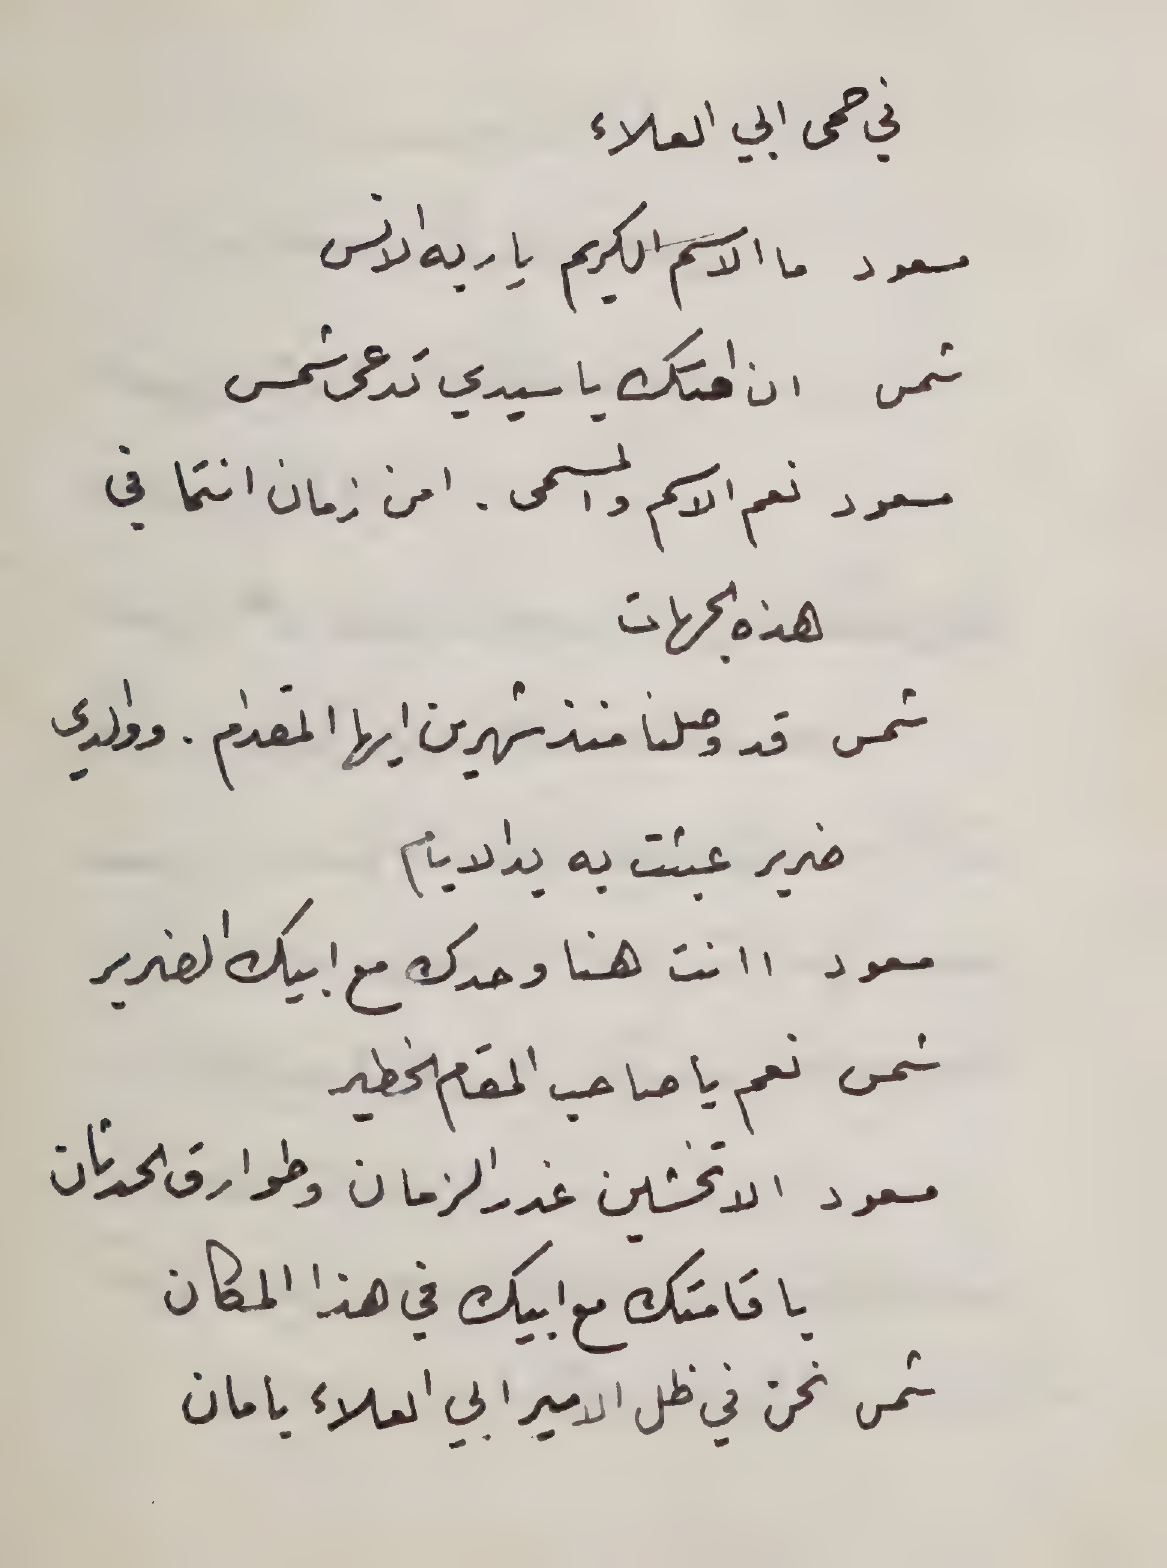 في حمى ابي العلاء
مسعود ما الاسم الكريم يا ربه الانس
شمس ان امتك يا سيدي تدعى شمس
مسعود نعم الاسم والمسمى . امن زمان انتما في
هذه الجهات
شمس قد وصلنا منذ شهرين ايها المقدام . ووالدي
ضرير عبثت به يد الايام
مسعود اانت هنا وحدك مع ابيك الضرير
شمس نعم يا صاحب المقام الخطير
مسعود الا تخشين غدر الزمان وطوارق الحدثان
باقامتك مع ابيك في هذا المكان
شمس نحن في ظل الامير ابي العلاء بامان